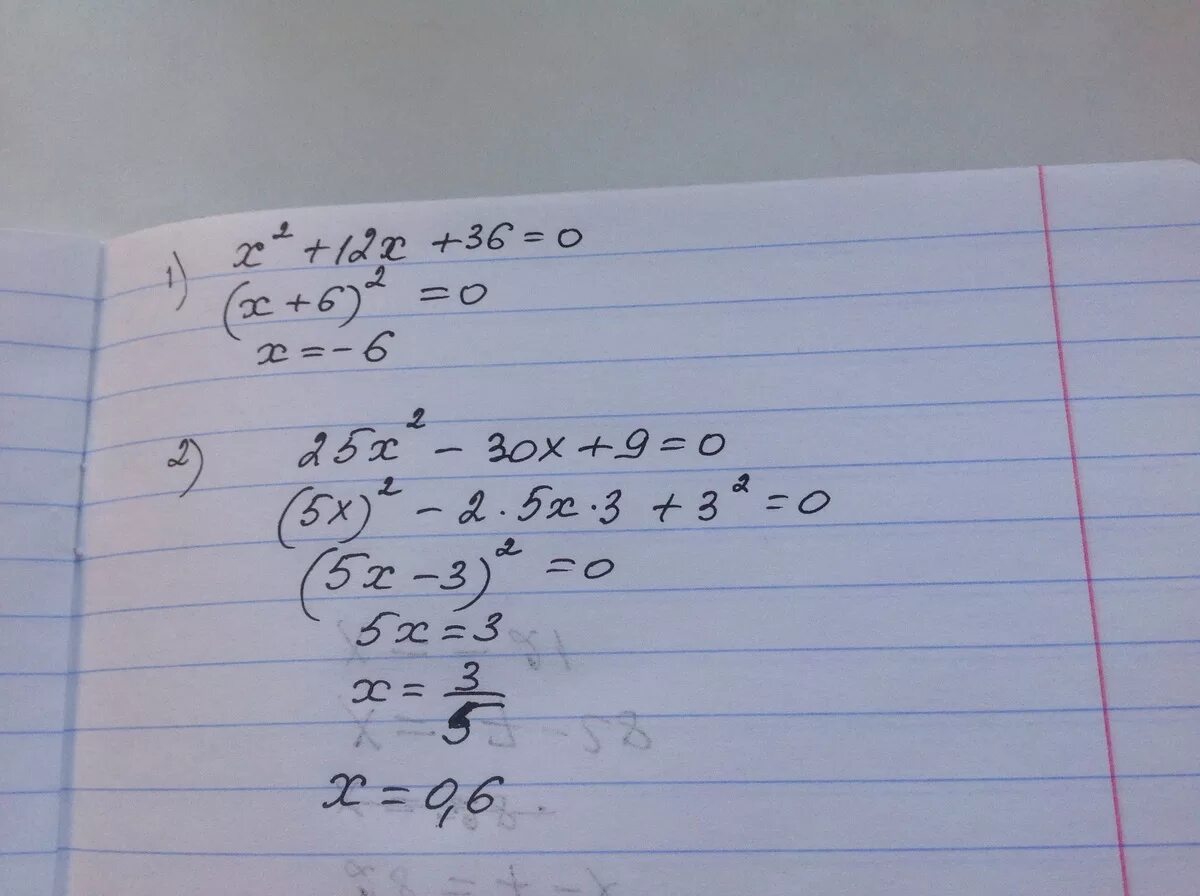 1) x² + 12x + 36 = 0
(x + 6)² = 0
x = -6
2) 25x² - 30x + 9 = 0
(5x)² - 2 · 5x · 3 + 3² = 0
(5x - 3)² = 0
5x = 3
x = 3/5
x = 0,6